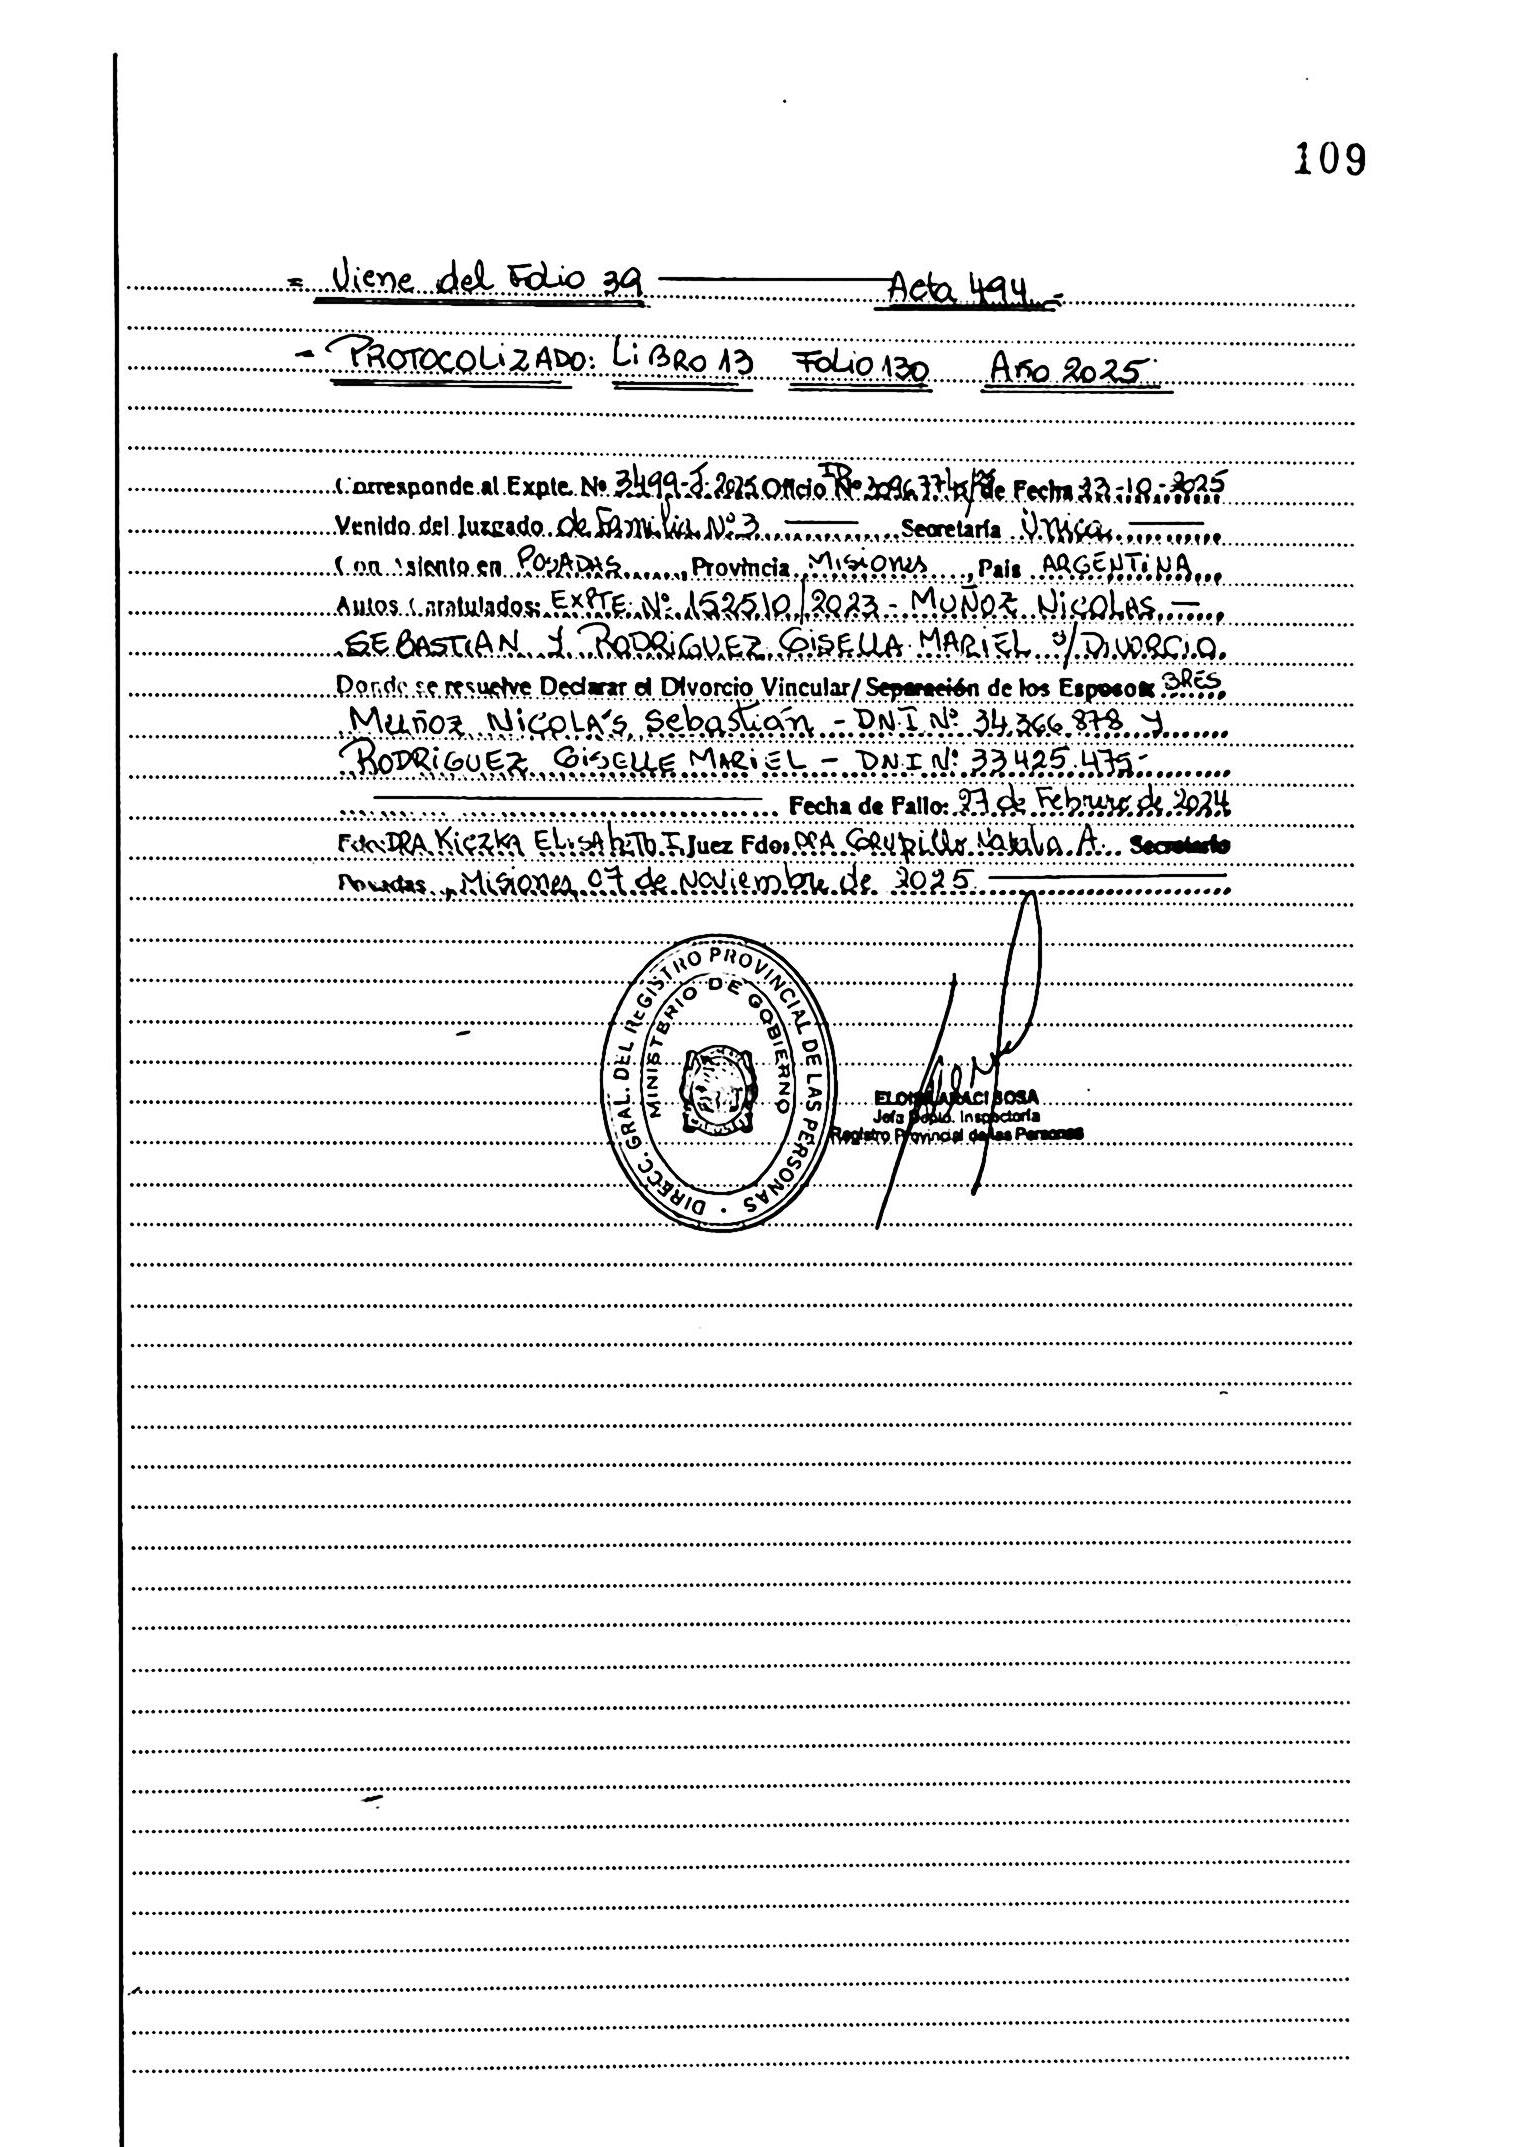 109
= Viene del Folio 39 Acta 494.-
- PROTOCOLIZADO: LiBRO 13 FOLIO 130 AÑO 2025.
Corresponde al Expte. Nº 3499-J-2025 Oficio Nº de Fecha 23-10-2025
Venido del Juzgado de Familia Nº 3 Secretaría Única
Con asiento en POSADAS, Provincia MISiONES, País ARGENTINA
Autos Caratulados: EXPTE Nº 152510/2023 - MUÑOZ NICOLAS
SEBASTIAN Y RODRIGUEZ GISELLA MARIEL S/ DIVORCIO
Donde se resuelve Declarar el Divorcio Vincular/ Separación de los Esposos: SRES
MUÑOZ NICOLÁS Sebastián - DNI Nº 34.366.878 y
RODRIGUEZ GISELLE MARIEL - DNI Nº 33.425.475-
Fecha de Fallo: 27 de Febrero de 2024
Fdo: DRA KiCZKA ELISABETH I. Juez Fdo: DRA A. Secretario
Posadas, Misiones, 07 de Noviembre de 2025
DIRECC. GRAL. DEL REGISTRO PROVINCIAL DE LAS PERSONAS
MINISTERIO DE GOBIERNO
ARACI SOSA
Jefa Depto. Inspectoría
Registro Provincial de las Personas